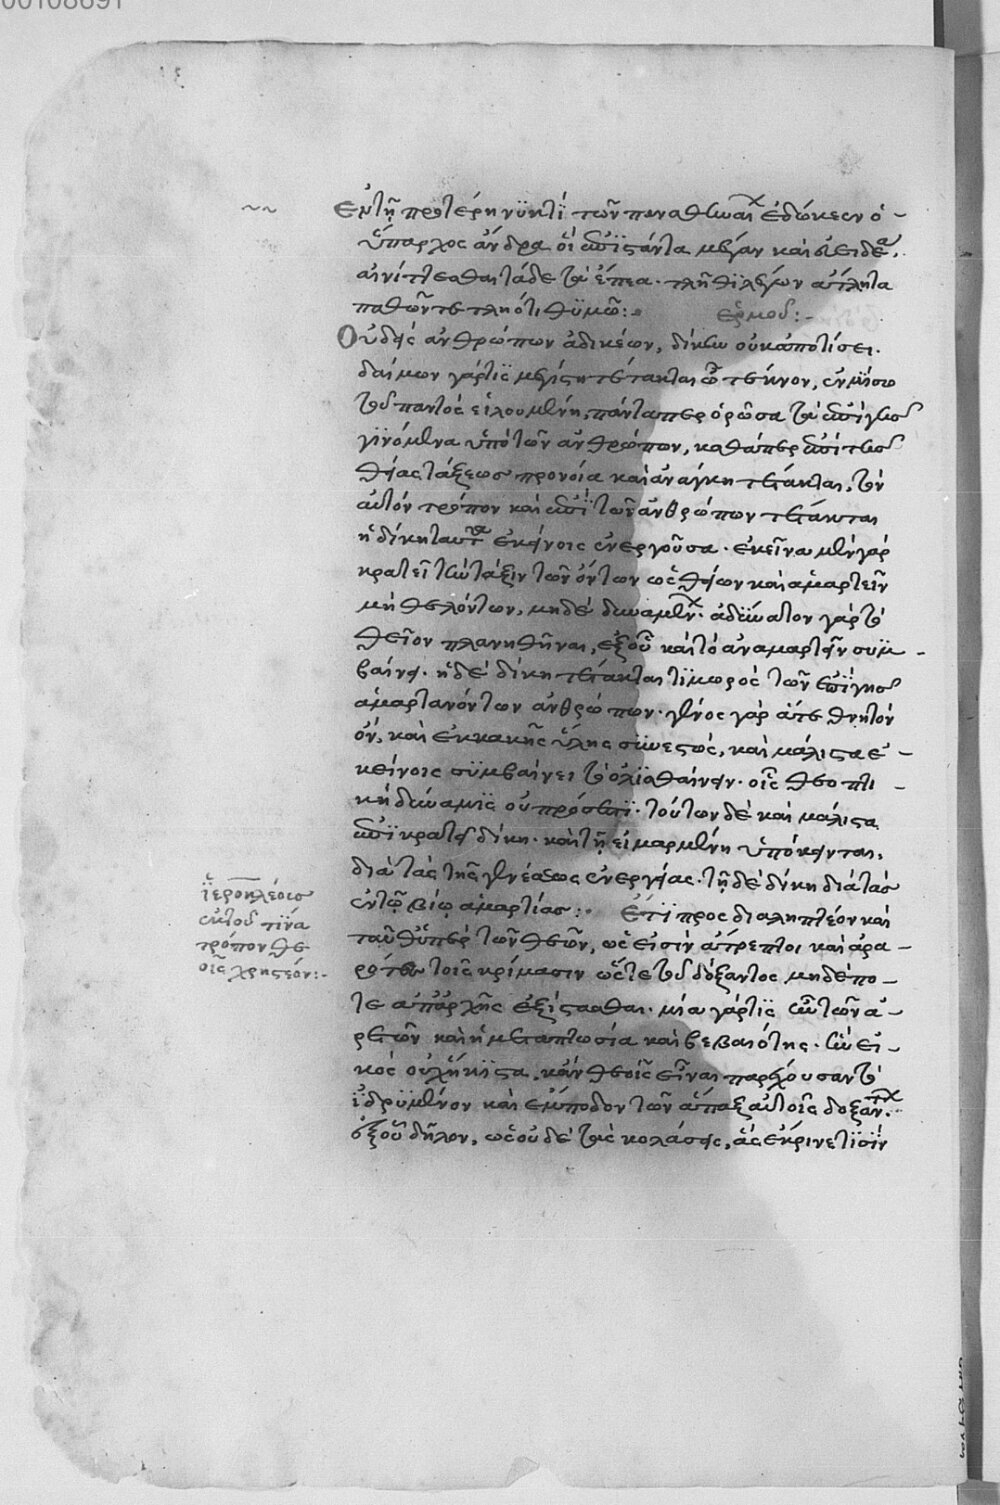 00108691
Ἐν τῇ προτέρῃ νυκτὶ τῶν παναθηναίων ἐδόκεεν ὁ
Ἵππαρχος ἄνδρα οἱ ἐπιστάντα μέγαν καὶ εὐειδέα,
αἰνίττεσθαι τάδε τὰ ἔπεα. τλῆθι λέγων ἄτλητα
παθὼν τετληότι θυμῷ:
ἑρμοῦ:
Οὐδεὶς ἀνθρώπων ἀδικέων, δίκην οὐκ ἀποτίσει.
δαίμων γάρ τις μεγίστη τέτακται ὦ τέκνον, ἐν μέσῳ
τοῦ παντὸς εἱλουμένη, πάντα περιορῶσα τὰ ἐπὶ γῆς
γινόμενα ὑπὸ τῶν ἀνθρώπων, καθάπερ ἐπὶ τῆς
θείας τάξεως προνοία καὶ ἀνάγκη τέτακται, τὸν
αὐτὸν τρόπον καὶ ἐπὶ τῶν ἀνθρώπων τέτακται
ἡ δίκη ταὐτὰ ἐκείνοις ἐνεργοῦσα. ἐκεῖνα μὲν γὰρ
κρατεῖ τὴν τάξιν τῶν ὄντων ὡς θείων καὶ ἁμαρτεῖν
μὴ θελόντων, μηδὲ δυναμένων. ἀδύνατον γὰρ τὸ
θεῖον πλανηθῆναι, ἐξ οὗ καὶ τὸ ἀναμαρτεῖν συμ
βαίνει. ἡ δὲ δίκη τέτακται τιμωρὸς τῶν ἐπὶ γῆς
ἁμαρτανόντων ἀνθρώπων. γένος γὰρ ἅτε θνητὸν
ὂν, καὶ ἐκ κακῆς ὕλης συνεστὸς, καὶ μάλιστα ἐ
κείνοις συμβαίνει τὸ ὀλισθαίνειν. οἷς θεοπτι
κὴ δύναμις οὐ πρόσεστι. τούτων δὲ καὶ μάλιστα
ἐπικρατεῖ δίκη. καὶ τῇ εἱμαρμένῃ ὑπόκεινται,
διὰ τὰς τῆς γενέσεως ἐνεργείας. τῇ δὲ δίκῃ διὰ τὰς
ἐν τῷ βίῳ ἁμαρτίας: Ἔτι προσδιαληπτέον καὶ
ταῦθ' ὑπὲρ τῶν θεῶν, ὡς εἰσὶν ἄτρεπτοι καὶ ἀρα
ρότες τοῖς κρίμασιν ὥστε τοῦ δόξαντος μηδέπο
τε ἀπαρχῆς ἐξίστασθαι. μία γάρ τις ἦν τῶν ἀ
ρετῶν καὶ ἡ μεταπτωσία καὶ βεβαιότης. ἣν εἰ
κὸς οὐχ ἥκιστα, κἂν θεοῖς εἶναι παρέχουσαν τὸ
ἱδρυμένον καὶ ἔμπεδον τῶν ἅπαξ αὐτοῖς δοξάντων.
ἐξ οὗ δῆλον, ὡς οὐδὲ τὰς κολάσεις, ἃς ἔκρινε τισὶν
ἱεροκλέους
ἐκ τοῦ τίνα
τρόπον θε
οῖς χρηστέον: